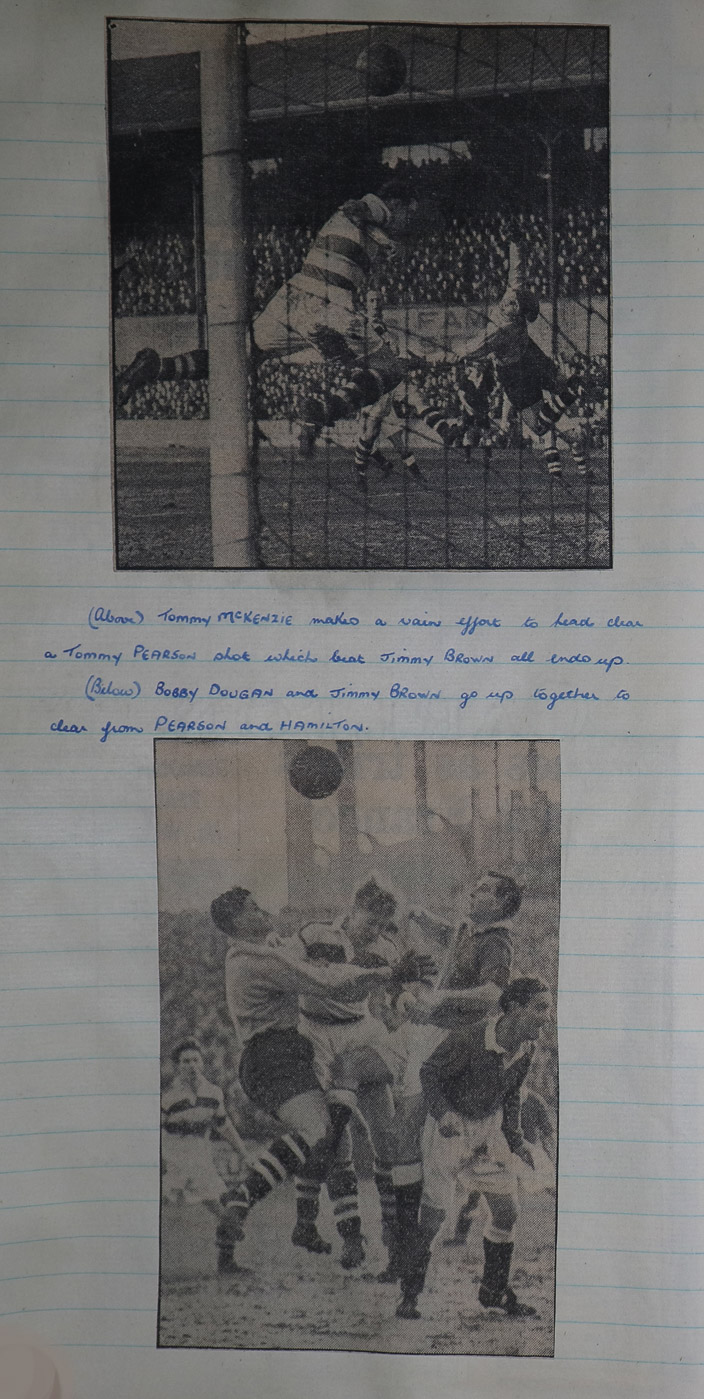 FAM
(Above) Tommy McKENZIE makes a vain effort to head clear
a Tommy PEARSON shot which beat Jimmy BROWN all ends up.
(Below) BOBBY DOUGAN and Jimmy BROWN go up together to
clear from PEARSON and HAMILTON.